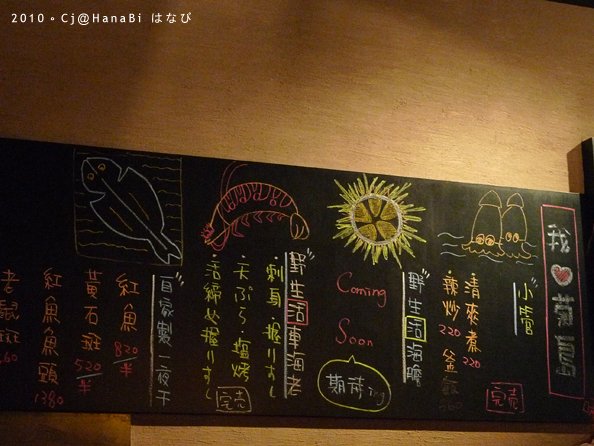 2010。Cj@HanaBi はなび
我♥菊島
小管
清燙煮 220
辣炒 220
完売
野生活海膽
Coming
Soon
期待ing
野生活車海老
刺身・握りすし
・天ぷら・塩焼
完売
自家製一夜干
紅魚 820/半
黃石斑 520/半
紅魚魚頭 1380
老鼠斑